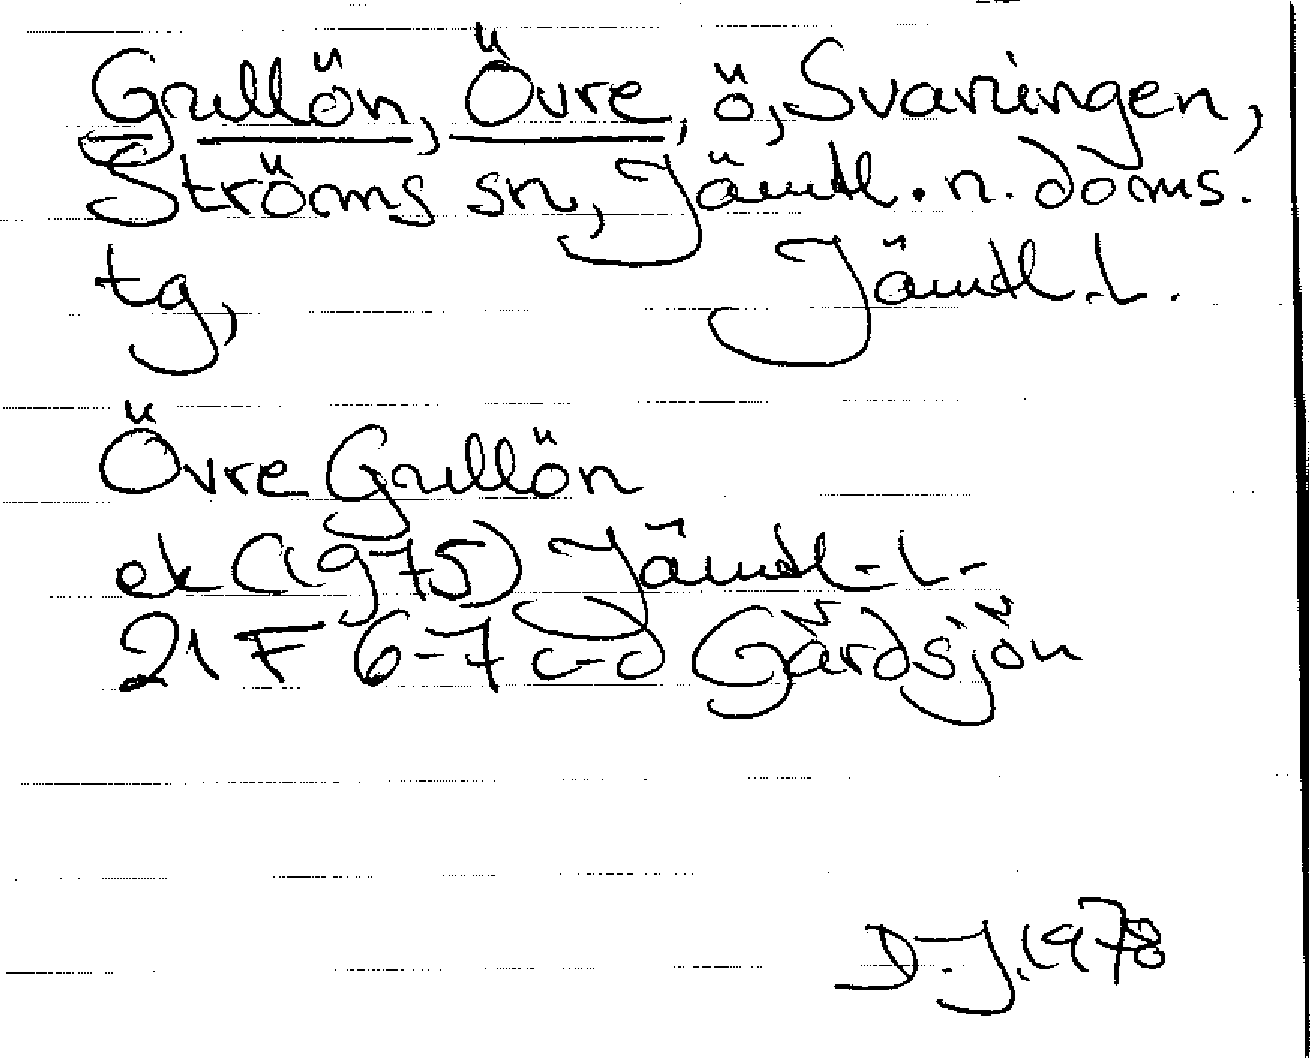 Grullön, Övre, ö, Svaningen,
Ströms sn, Jämtl. n. doms.
tg, Jämtl. l.
Övre Grullön
ek (1975) Jämtl. l.
21 F 6-7 c-d Gärdsjön
D. J. 1978